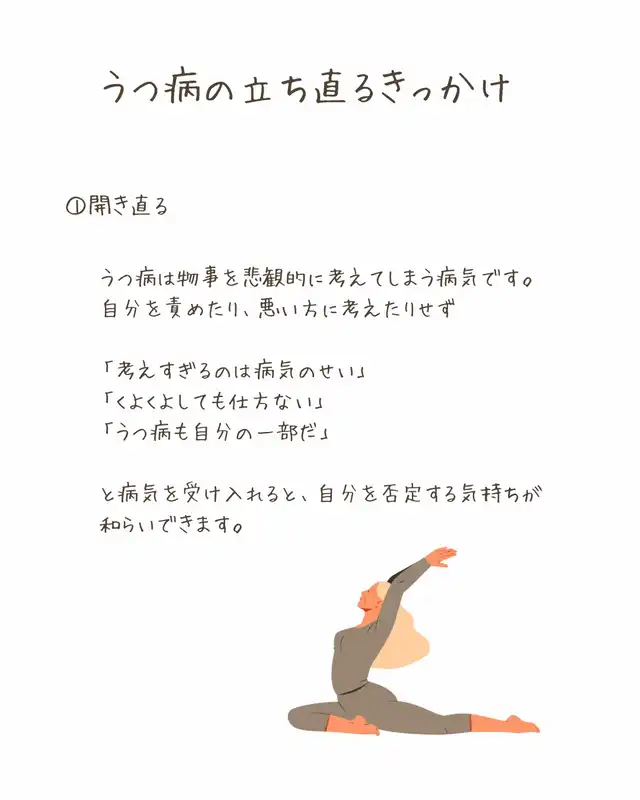 うつ病の立ち直るきっかけ
①開き直る
うつ病は物事を悲観的に考えてしまう病気です。
自分を責めたり、悪い方に考えたりせず
「考えすぎるのは病気のせい」
「くよくよしても仕方ない」
「うつ病も自分の一部だ」
と病気を受け入れると、自分を否定する気持ちが
和らいできます。